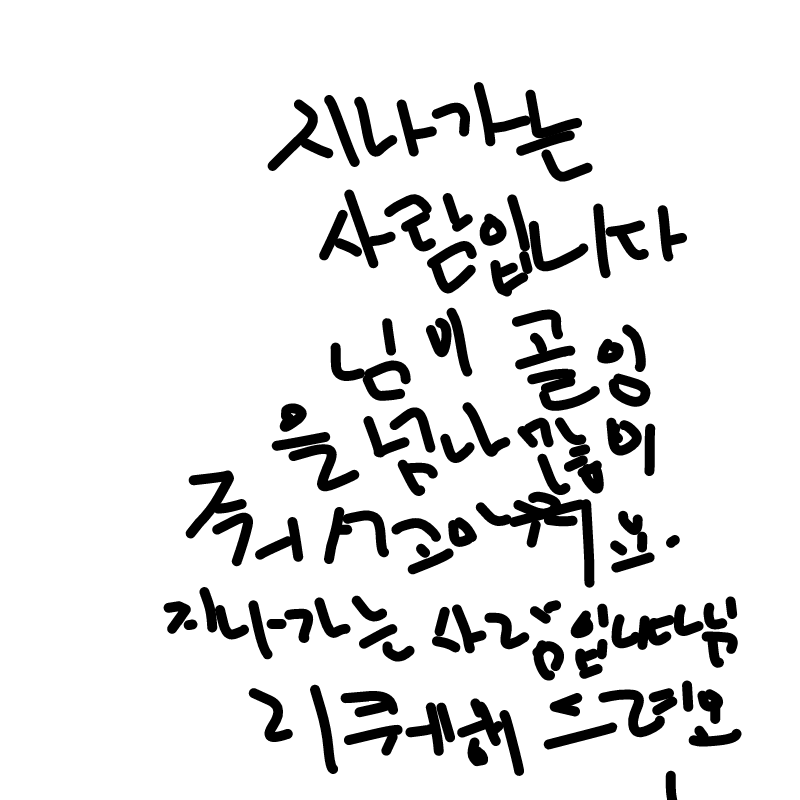 지나가는
사람입니다
님이 골잉
을 넘나 많이
죽서 고마워요.
지나가는 사람입니다 님
리퀘해 드려요